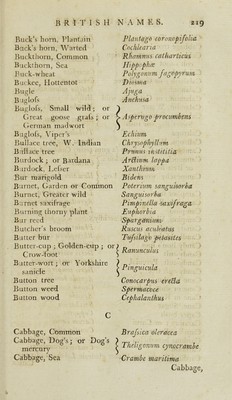 BRITISH NAMES. 219
Buck's horn, Plantain Plantago coronopifolia
Buck's horn, Warted Cochlearia
Buckthorn, Common Rhamnus catharticus
Buckthorn, Sea Hippophae
Buck-wheat Polygonum fagopyrum
Buckee, Hottentot Diosma
Bugle Ajuga
Bugloss Anchusa
Bugloss, Small wild; or
Great goose grass; or } Asperugo procumbens
German madwort
Bugloss, Viper's Echium
Bullace tree, W. Indian Chrysophyllum
Bullace tree Prunus insititia
Burdock; or Bardana Arctium lappa
Burdock, Lesser Xanthium
Bur marigold Bidens
Burnet, Garden or Common Poterium sanguisorba
Burnet, Greater wild Sanguisorba
Burnet saxifrage Pimpinella saxifraga
Burning thorny plant Euphorbia
Bur reed Sparganium
Butcher's broom Ruscus aculeatus
Butter bur Tussilago petasites
Butter-cup; Golden-cup; or } Ranunculus
Crow-foot
Butter-wort; or Yorkshire } Pinguicula
sanicle
Button tree Conocarpus erecta
Button weed Spermacoce
Button wood Cephalanthus
C
Cabbage, Common Brassica oleracea
Cabbage, Dog's; or Dog's } Theligonum cynocrambe
mercury
Cabbage, Sea Crambe maritima
Cabbage,